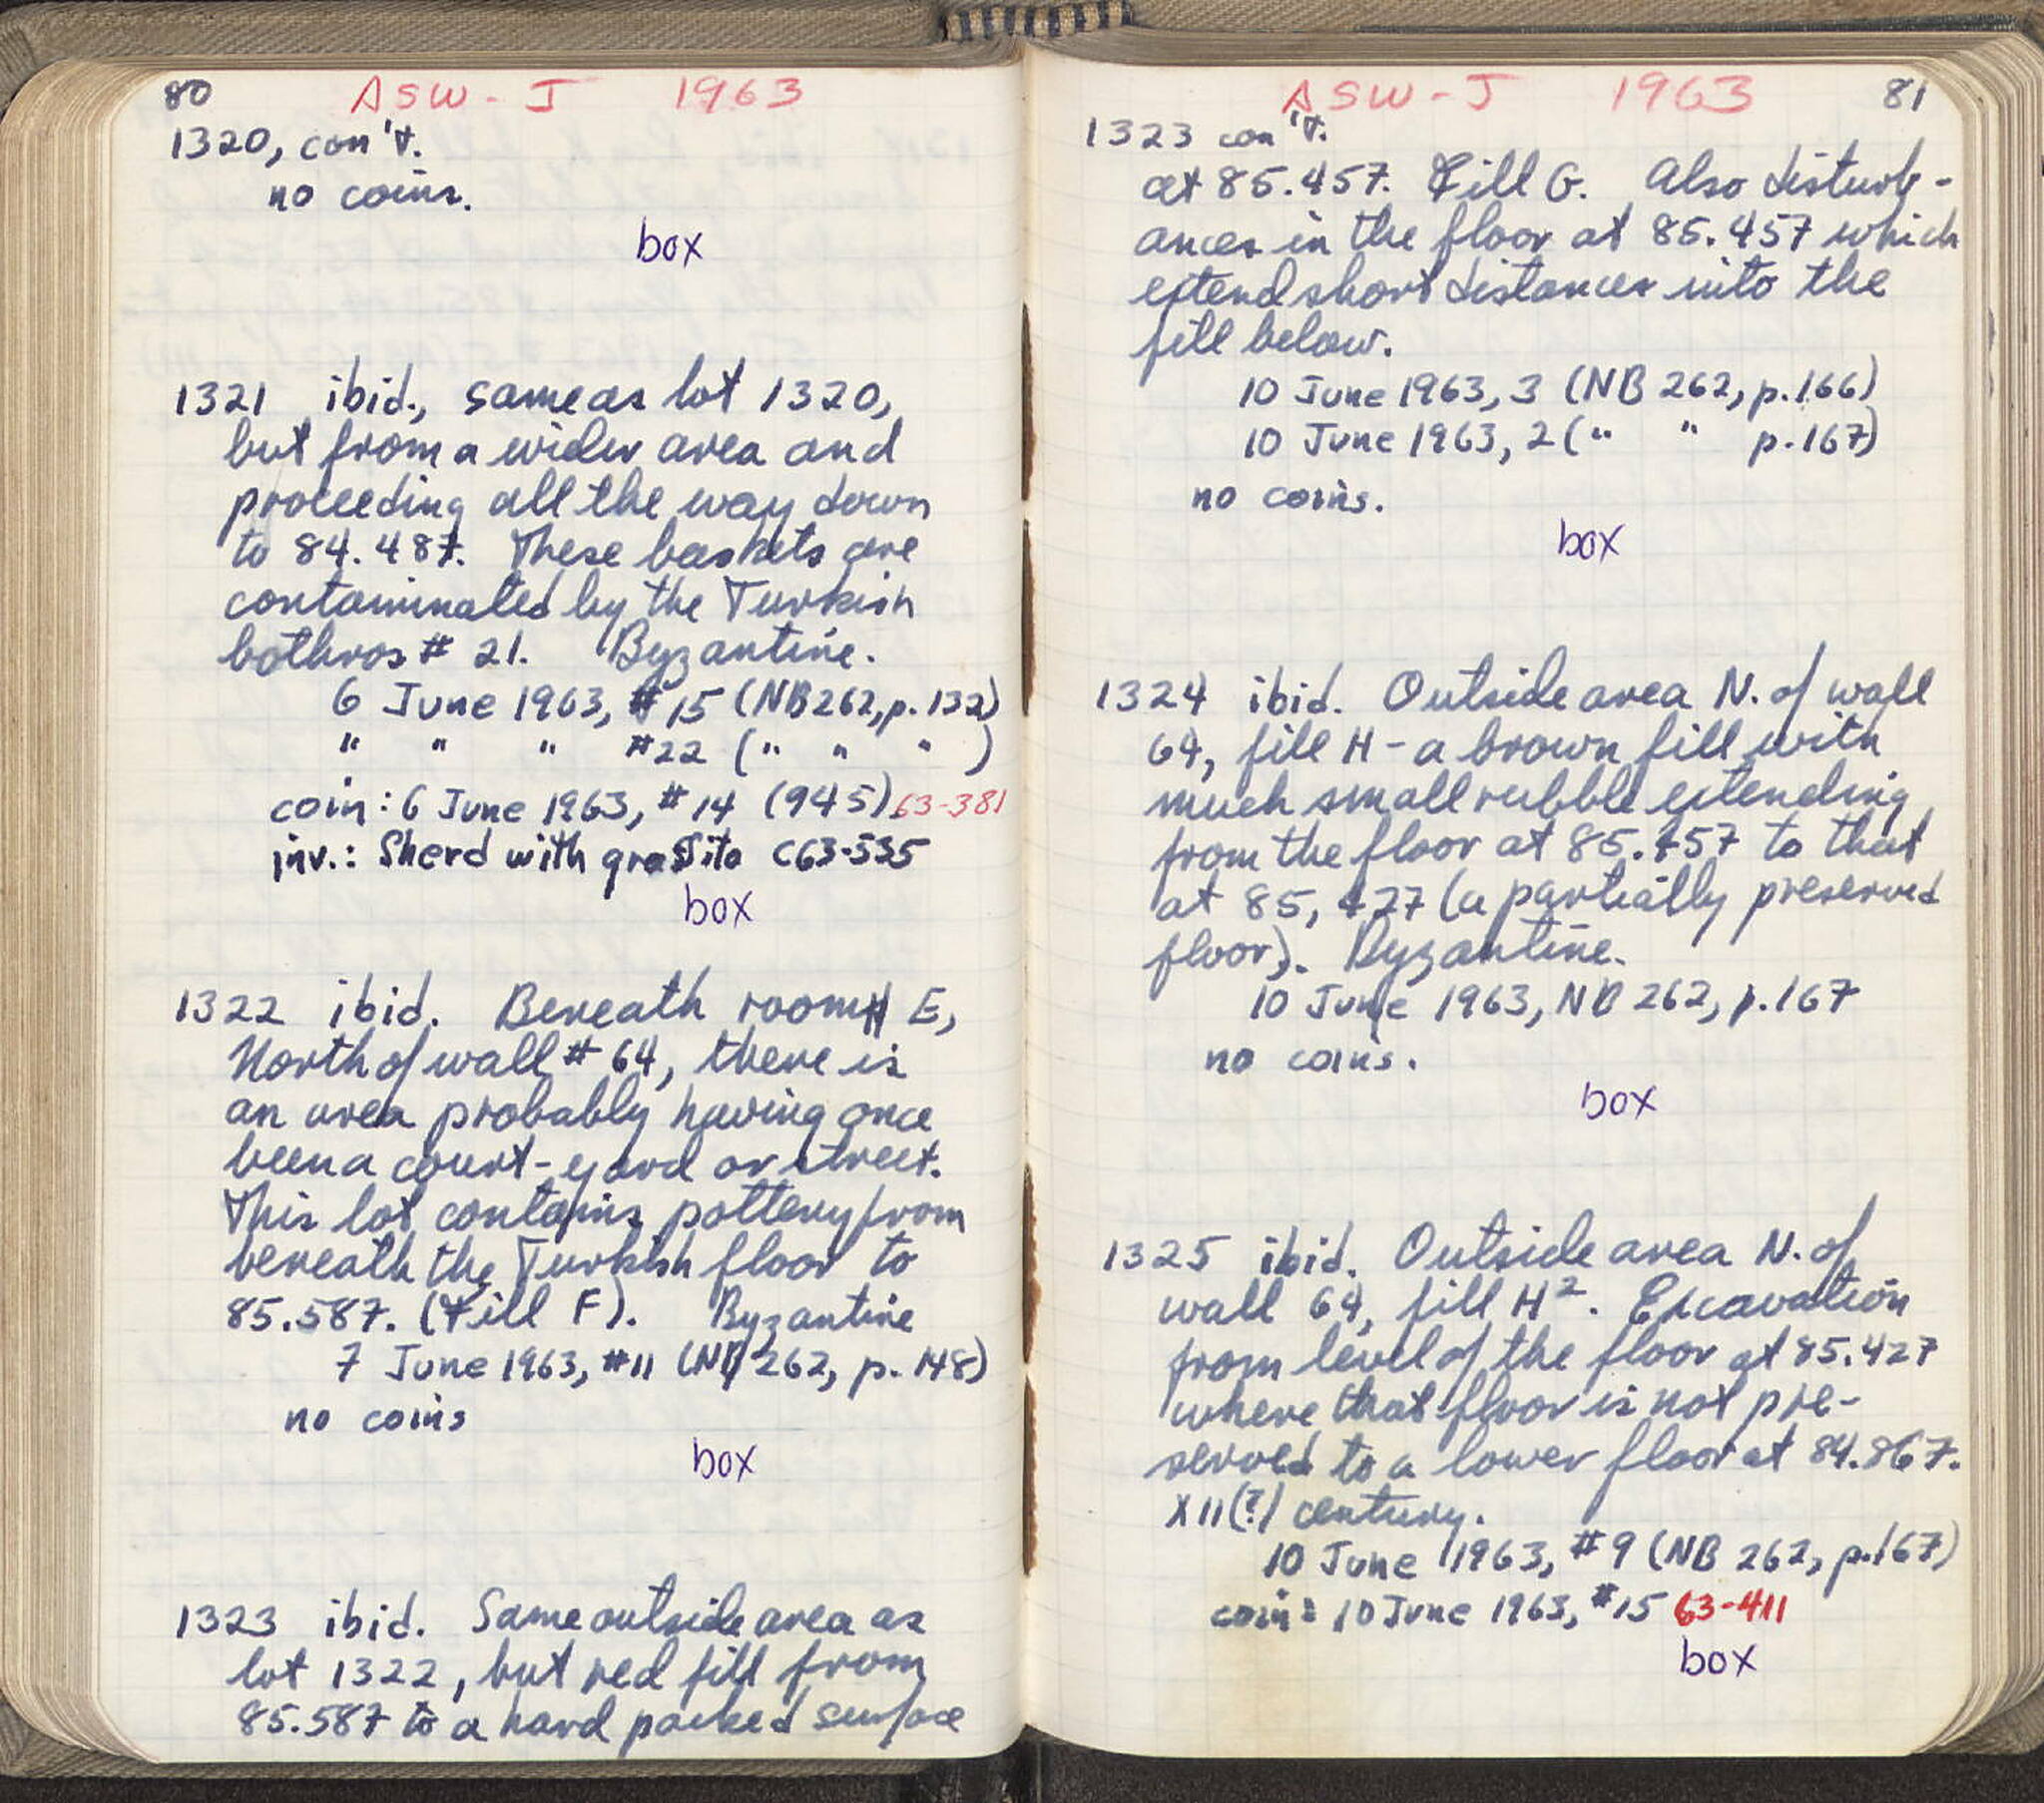 80 ASW-J 1963
1320, con't.
no coins.
box
1321 ibid., same as lot 1320,
but from a wider area and
proceeding all the way down
to 84.487. These baskets are
contaminated by the Turkish
bothros # 21. Byzantine.
6 June 1963, #15 (NB262, p. 132)
" " " #22 (" " " )
coin: 6 June 1963, #14 (945) 63-381
inv.: Sherd with graffito C63-535
box
1322 ibid. Beneath room E,
North of wall # 64, there is
an area probably having once
been a court-yard or street.
This lot contains pottery from
beneath the Turkish floor to
85.587. (Fill F). Byzantine
7 June 1963, #11 (NB 262, p. 148)
no coins
box
1323 ibid. Same outside area as
lot 1322, but red fill from
85.587 to a hard packed surface
ASW-J 1963 81
1323 con't.
at 85.457. Fill G. Also disturb-
ances in the floor at 85.457 which
extend short distances into the
fill below.
10 June 1963, 3 (NB 262, p.166)
10 June 1963, 2 (" " p.167)
no coins.
box
1324 ibid. Outside area N. of wall
64, fill H - a brown fill with
much small rubble extending
from the floor at 85.457 to that
at 85,427 (a partially preserved
floor). Byzantine.
10 June 1963, NB 262, p.167
no coins.
box
1325 ibid. Outside area N. of
wall 64, fill H². Excavation
from level of the floor at 85.427
where that floor is not pre-
served to a lower floor at 84.867.
XII(?) century.
10 June 1963, #9 (NB 262, p.167)
coin: 10 June 1963, #15 63-411
box